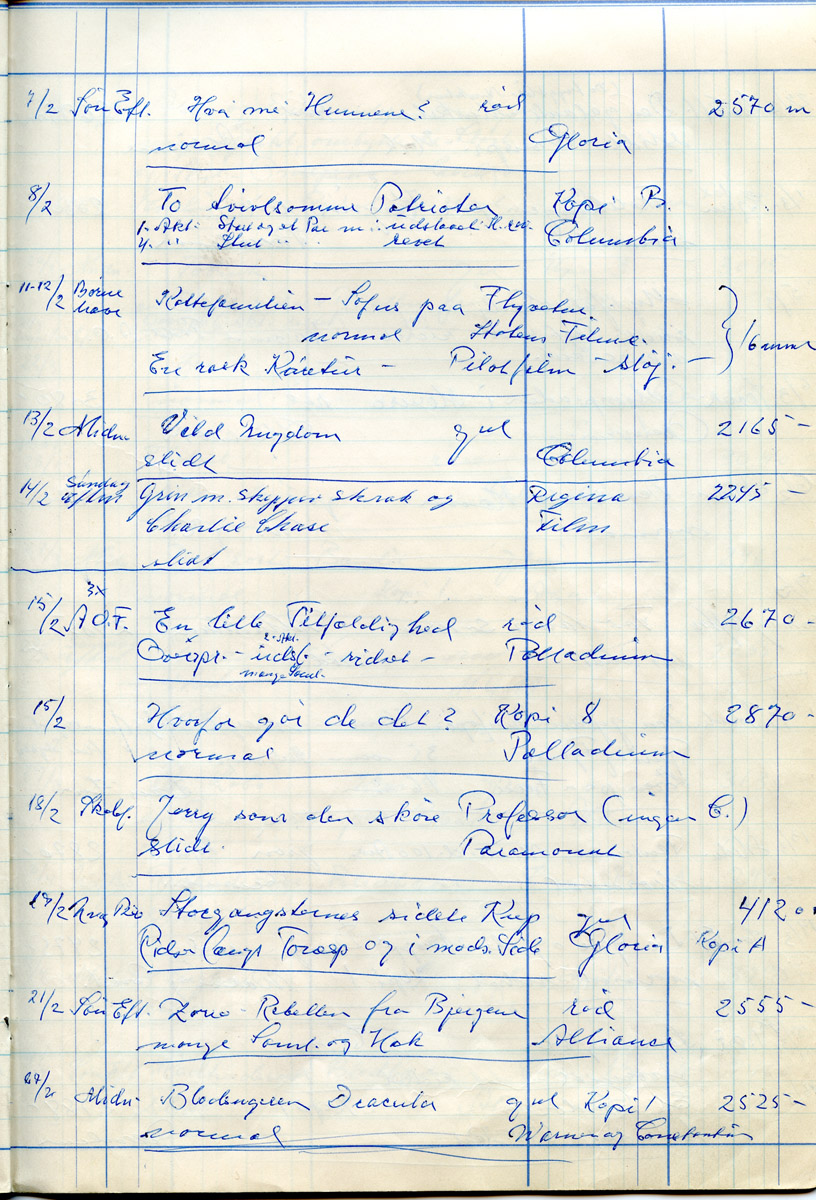 7/2 Søn Eft. Hva me' Hunnene? rød 2570 m
normal Gloria
8/2 To tvivlsomme Patrioter Kopi B.
1. Akt: Start og et Par m: udstandt
4. " Slut " " revet Columbia
11-12/2 Børne have Kattefamilien – Sofus paa Flyvetur.
normal Statens Filmc. 16 mm
En rask Køretur – Pilotfilm – støj. –
13/2 Midn. Vild Ungdom gul 2165 –
slidt Columbia
14/2 Søndag Grin m. skæggav skrak og Regina 2245 –
Charlie Chase Film
slidt
15/2 3x A.O.F. En lille Tilfældighed rød 2670 –
2. Akt.
- udst. - ridset - Palladium
mange Saml.
15/2 Hvorfor gør de det? Kopi 8 2870 –
normal Palladium
18/2 Skolef. Jerry som den skøre Professor (ingen C.)
Slidt. Paramount
19/2 Storgangsternes sidste Kup gul 4120 m
Ridser langs Tonesp og i mods. Side Gloria Kopi A
21/2 Søn Eft. Zorro - Rebellen fra Bjergene rød 2555 –
mange Saml. og Hak Alliance
27/2 Midn. Blodengelen Dracula gul Kopi 1 2525 –
normal Warner og Constantin